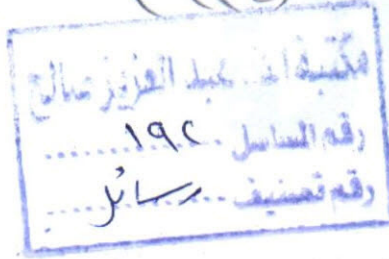 مكتبة أ.د. عبد العزيز صالح
رقم المسلسل ١٩٢
رقم تصنيف رسائل